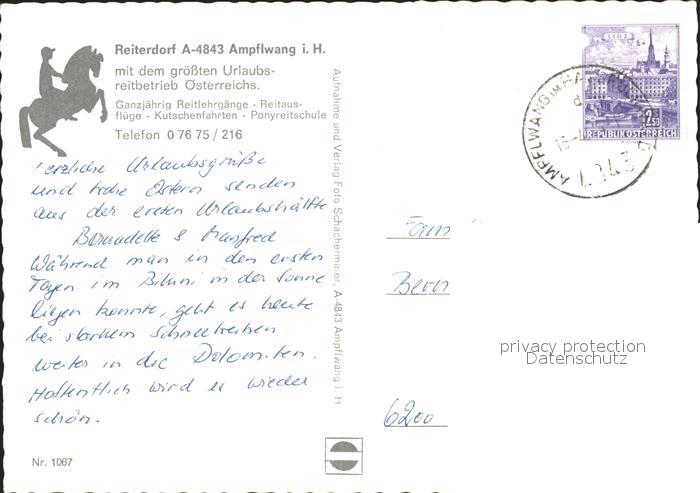 Reiterdorf A-4843 Ampflwang i. H.
mit dem größten Urlaubs-
reitbetrieb Österreichs.
Ganzjährig Reitlehrgänge - Reitaus-
flüge - Kutschenfahrten - Ponyreitschule
Telefon 0 76 75 / 216
erzliche Urlaubsgrüße
und frohe Ostern senden
aus der ersten Urlaubshälfte
Bernadette & Manfred
Während man in den ersten
Tagen im Bikini in der Sonne
liegen konnte, geht es heute
bei starkem Schneetreiben
weiter in die Dolomiten.
Hoffentlich wird es wieder
schön.
Nr. 1067
Aufnahme und Verlag Foto Schachermaier, A-4843 Ampflwang i. H
LINZ
2.50
REPUBLIK ÖSTERREICH
AMPFLWANG IM
Fam
Bern
6200
privacy protection
Datenschutz